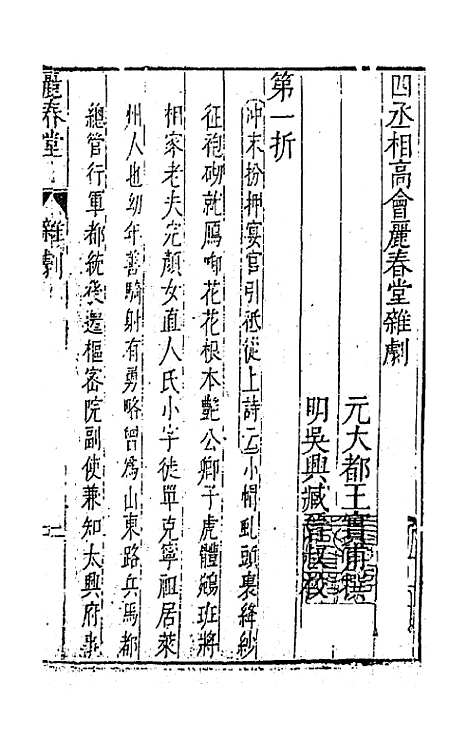 四丞相高會麗春堂雜劇
元大都王實甫撰
明吳興臧晉叔校
第一折
沖末扮押宴官引祗從上詩云小帽虬頭裹絳紗
征袍砌就鴈啣花花根本艷公卿子虎體鵷班將
相家老夫完顔女直人氏小字徒單克寧祖居萊
州人也幼年善騎射有勇略曾爲山東路兵馬都
總管行軍都統後遷樞密院副使兼知大興府事
麗春堂
雜劇
一